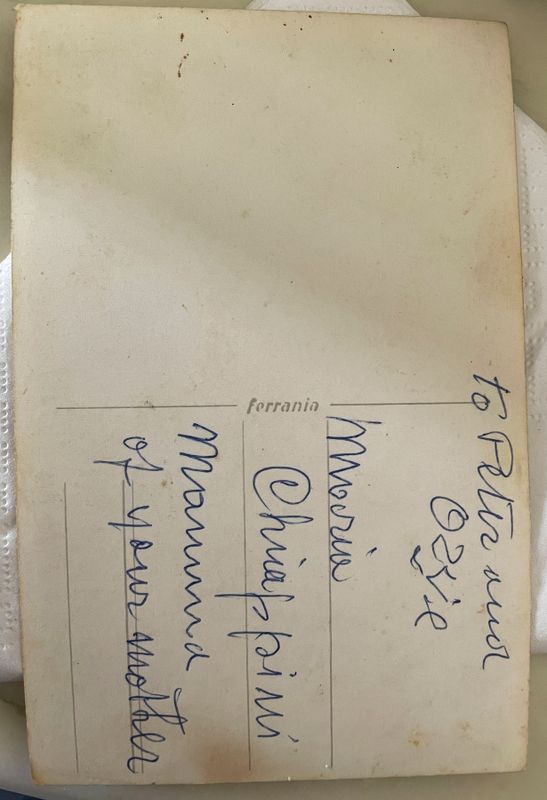 to Peter and
Ozzie
Maria
Chiappini
Mamma
of your mother
ferrania